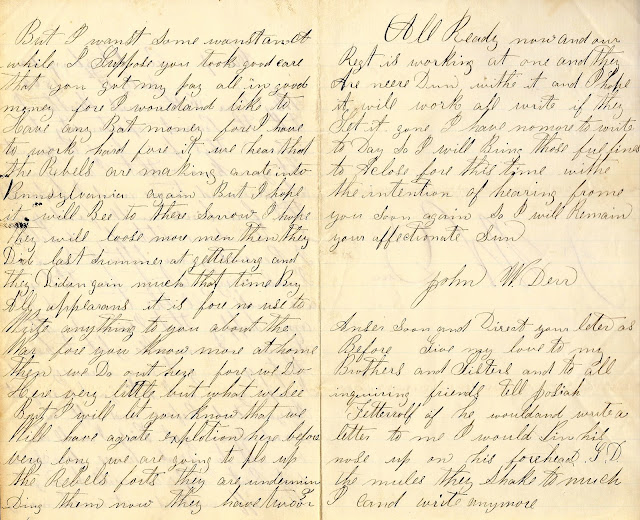 But I wanst some wanst an a
while I Suppose you took good care
that you got my pay all in good
money fore I wouldand like to
Have any Bat money fore I have
to work hard fore it we hear that
the Rebels are making arode into
Pennsylvania again But I hope
it will Bee to there Sorrow I hope
they will loose more men then they
Did last Summer at gettesburg and
they Didan gain much that time Buy
All appearans it is fore no use to
Write anything to you about the
War fore you Know more at home
then we Do out here fore we Do
Here very little but what we See
But I will let you know that we
Will have agrate explotion here before
very long we are going to blo up
the Rebels forts they are undermin
Ding them now they have two or
All Ready now and our
Regt is working at one and they
Are neere Dun withe it and I hope
it will work all write if they
Set it gone I have no more to write
to Day So I will Bring those fue lines
to Aclose fore this time withe
the intention of hearing frome
you Soon again So I will Remain
your affectionate Sun
John W. Derr
Anser Soon and Direct your leter as
Before Give my love to my
Brothers and Sisters and to all
inquiring friends tell Josiah
Fetterolf if he wouldand write a
letter to me I would Sin his
nose up on his forehead G. D
the mules they Shake to much
I cand write anymore